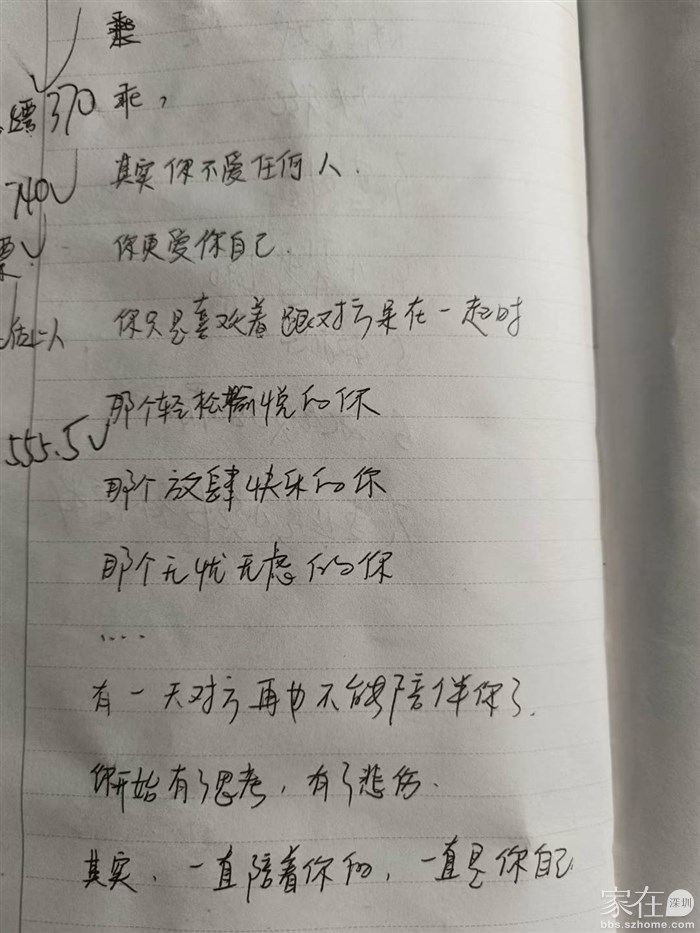 乖，
其实你不爱任何人.
你更爱你自己.
你只是喜欢着跟对方呆在一起时
那个轻松愉悦的你
那个放肆快乐的你
那个无忧无虑的你
....
有一天对方再也不能陪伴你了.
你开始有了思考，有了悲伤.
其实、一直陪着你的，一直是你自己
370
740
555.5
家在深圳
bbs.szhome.com